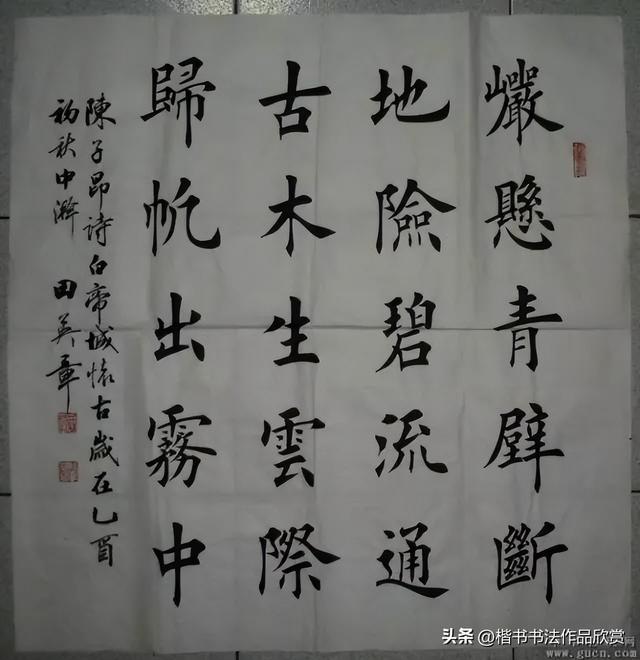 巗懸青壁斷
地險碧流通
古木生雲際
歸帆出霧中
陳子昂詩白帝城懷古歲在乙酉
初秋中澣 田英章
头条 @楷书书法作品欣赏
www.gucn.com